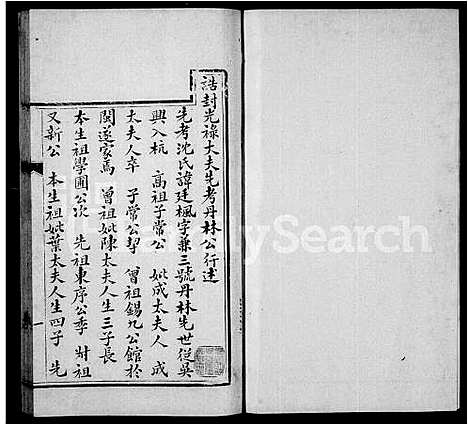 誥封光祿大夫先考丹林公行述
先考沈氏諱廷楓字兼三號丹林先世從吳
興入杭 高祖子常公 妣成太夫人 成
太夫人卒 子常公挈 曾祖錫九公館於
閩遂家焉 曾祖妣陳太夫人生三子長
本生祖學圃公次 先祖東序公季 尌祖
又新公 本生祖妣葉太夫人生四子 先
Search